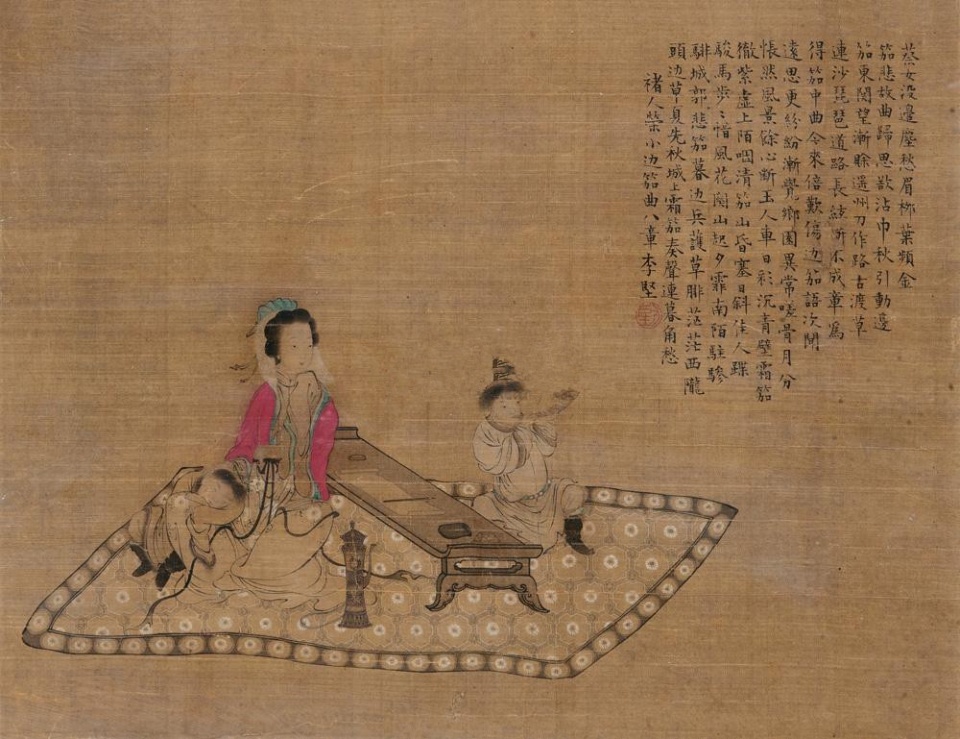 蔡女没邊塵愁眉柳葉顰金
笳悲故曲歸思欲沾巾秋引動邊
笳東関望漸賒遥州刀作路古渡草
連沙琵琶道路長絃断不成章為
得笳中曲令來倍歎傷边笳語次聞
遠思更紛紛漸覺鄉園異常嗟骨月分
悵然風景餘心斷玉人車日彩沉青壁霜笳
徹紫虚上陌咽清笳山昏塞日斜佳人蹀
駿馬步〻惜風花関山起夕霏南陌駐驂
騑城郭悲笳暮边兵護草腓茫茫西隴
頭边草夏先秋城上霜笳奏聲連暮角愁
褚人榮小边笳曲八章李堅